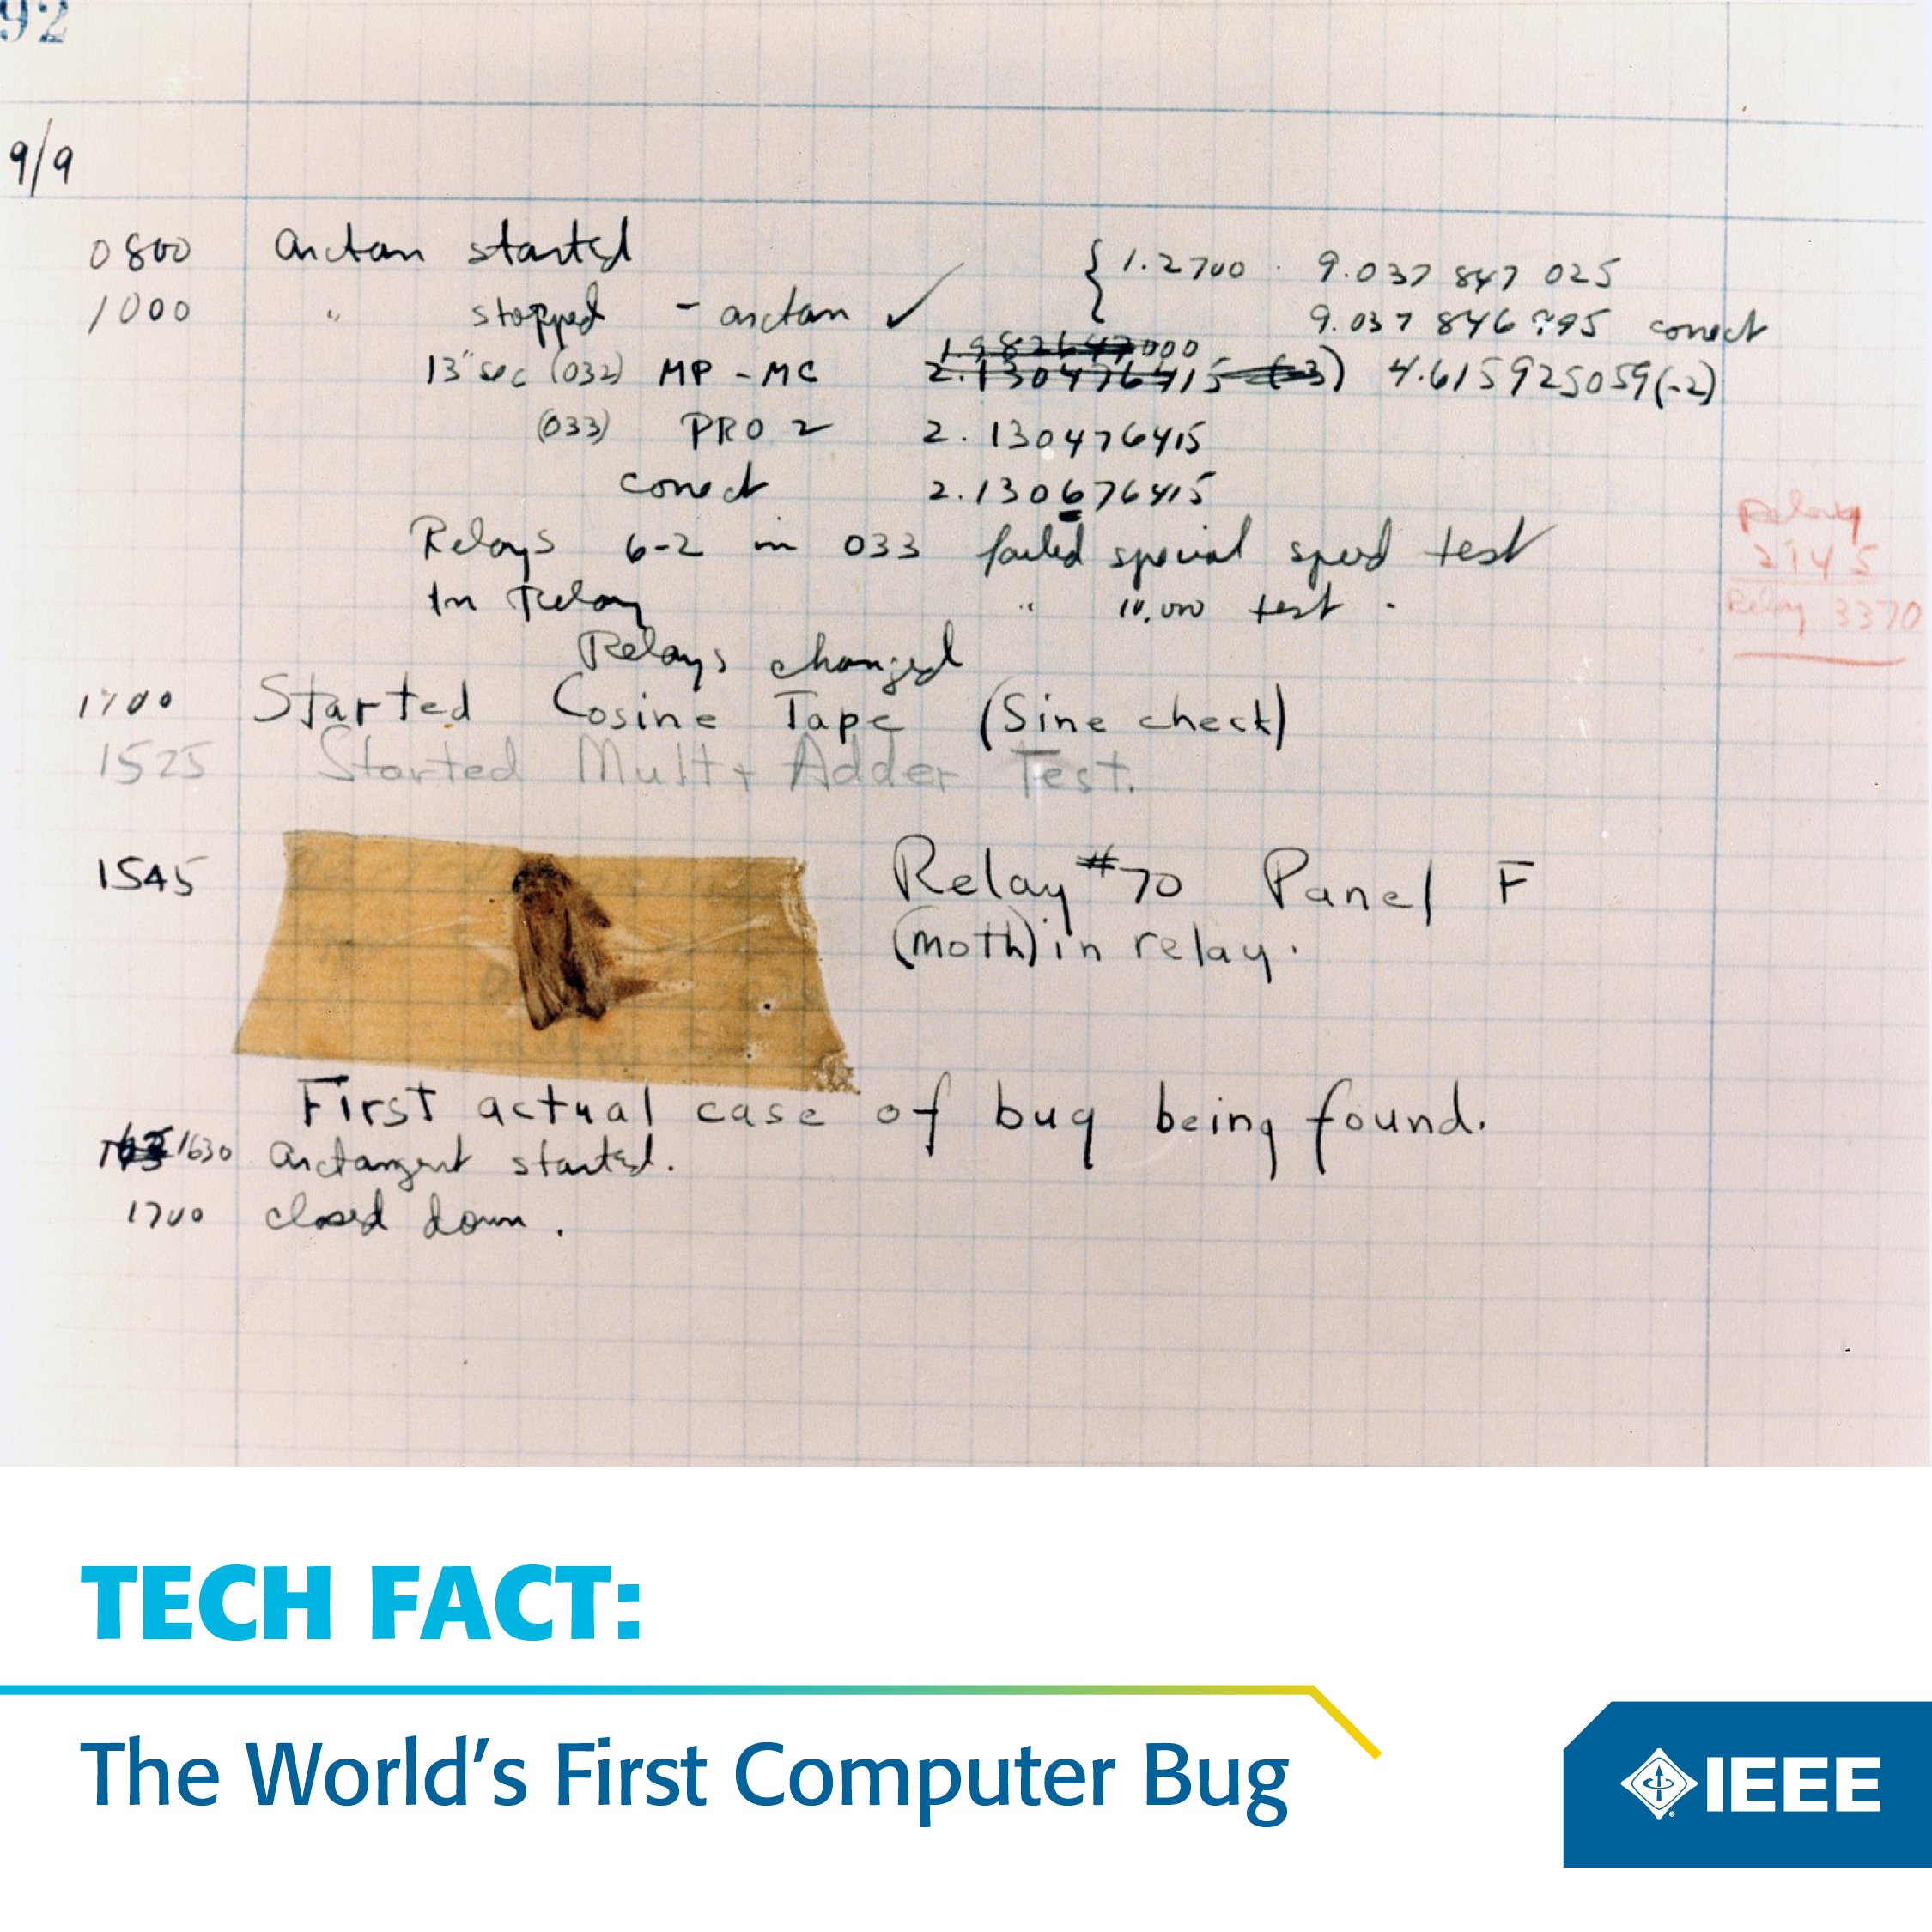 92
9/9
0800 arctan started { 1.2700 9.037 847 025
1000 " stopped - arctan ✓ 9.037 846 995 correct
13" sec (032) MP - MC 1.982647000 2.130476415 (-3) 4.615925059(-2)
(033) PRO 2 2.130476415
correct 2.130676415
Relays 6-2 in 033 failed special speed test
In Relay " 10.000 test .
Relay
2145
Relay 3370
Relays changed
1700 Started Cosine Tape (Sine check)
1525 Started Mult + Adder Test.
1545 Relay #70 Panel F
(moth) in relay.
First actual case of bug being found.
1630 arctangent started.
1700 closed down.
TECH FACT:
The World's First Computer Bug
IEEE